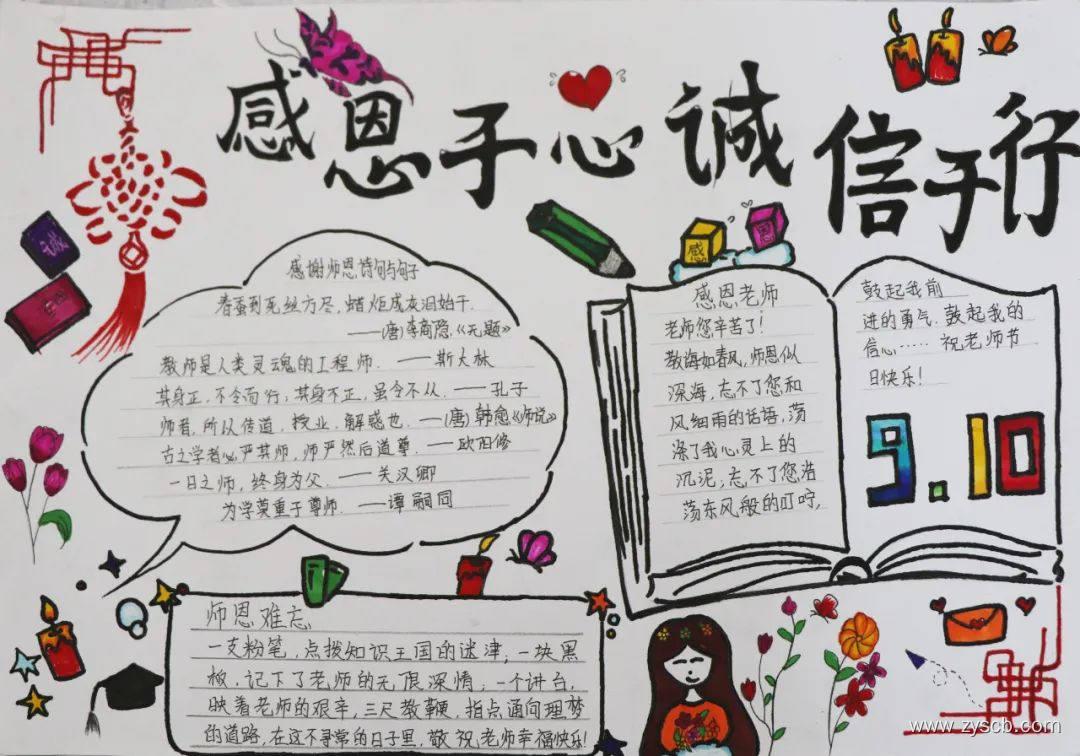 感恩于心诚信于行
诚
感
恩
感谢师恩诗句与句子
春蚕到死丝方尽，蜡炬成灰泪始干.
——(唐)李商隐《无题》
教师是人类灵魂的工程师. ——斯大林
其身正，不令而行；其身不正，虽令不从. ——孔子
师者，所以传道，授业，解惑也. ——(唐)韩愈《师说》
古之学者必严其师，师严然后道尊. ——欧阳修
一日之师，终身为父. ——关汉卿
为学莫重于尊师. ——谭嗣同
感恩老师
老师您辛苦了！
教诲如春风，师恩似
深海，忘不了您和
风细雨的话语，荡
涤了我心灵上的
沉泥；忘不了您浩
荡东风般的叮咛，
鼓起我前
进的勇气，鼓起我的
信心…… 祝老师节
日快乐！
9.10
师恩难忘
一支粉笔，点拨知识王国的迷津；一块黑
板，记下了老师的无限深情；一个讲台，
映着老师的艰辛，三尺教鞭，指点通向理梦
的道路，在这不寻常的日子里，敬祝老师幸福快乐！
www.zyscb.com